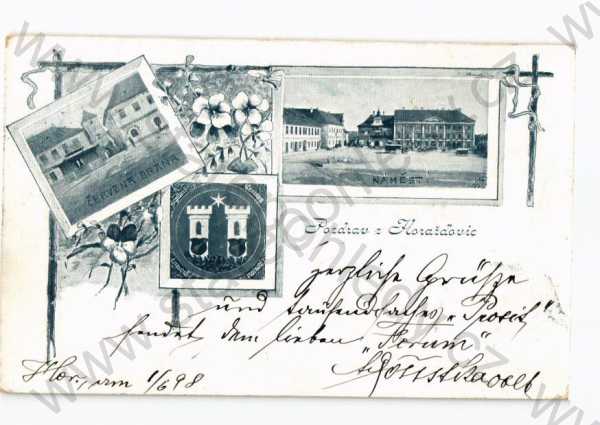 ČERVENÁ BRÁNA
NÁMĚSTÍ
Pozdrav z Horažďovic
herzliche Grüße
und tausendfaches „Prosit"
sendet dem lieben
Hor., am 1/6 98